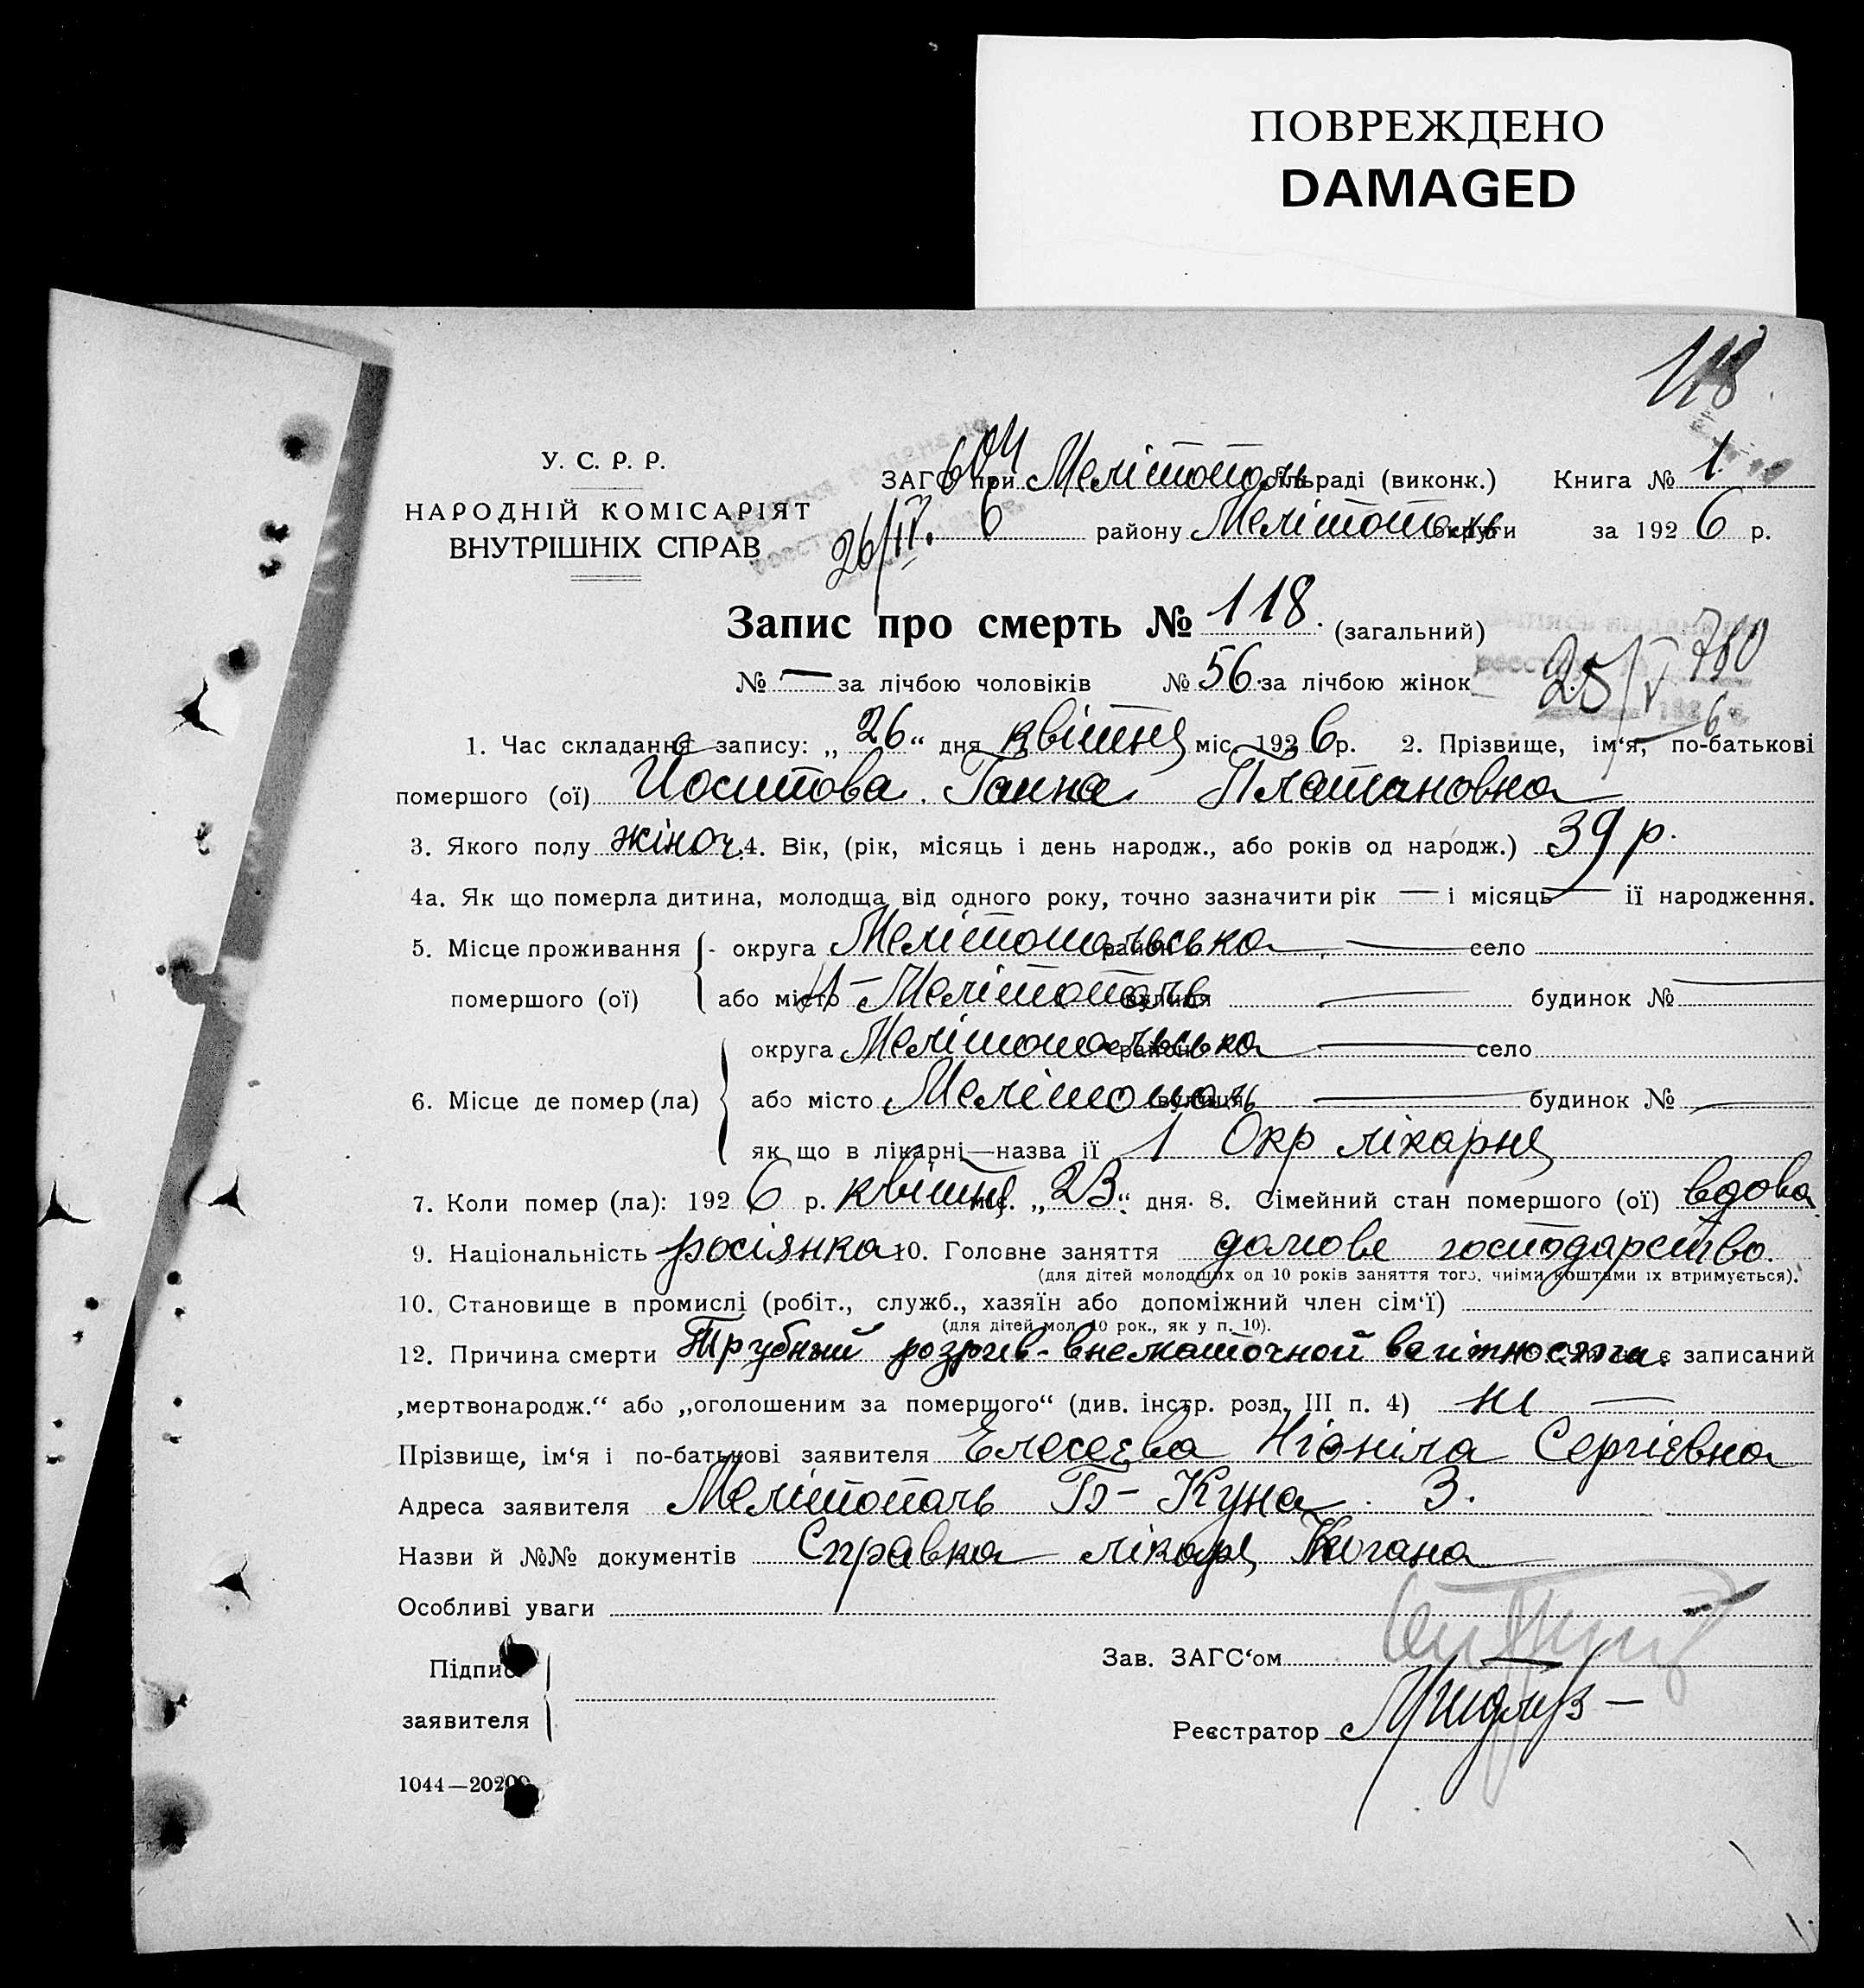 ПОВРЕЖДЕНО
DAMAGED
118
У. С. Р. Р.
НАРОДНІЙ КОМІСАРІЯТ
ВНУТРІШНІХ СПРАВ
604
ЗАГС при Мелітополь сільраді (виконк.) Книга № 1
26/IV. 6 району Мелітополь округи за 1926 р.
Запис про смерть № 118. (загальний)
№ — за лічбою чоловіків № 56. за лічбою жінок
25/V 780
6
1. Час складання запису: „26“ дня квітня міс. 1926 р. 2. Прізвище, ім‘я, по-батькові
помершого (ої) Йосипова Ганна Платановна
3. Якого полу жіноч. 4. Вік, (рік, місяць і день народж., або років од народж.) 39 р.
4а. Як що померла дитина, молодща від одного року, точно зазначити рік — і місяць — її народження.
5. Місце проживання округа Мелітопольська район — село
помершого (ої) або місто Мелітополь вулиця — будинок № —
округа Мелітопольська район — село
6. Місце де помер (ла) або місто Мелітополь вулиця — будинок № —
як що в лікарні—назва ії 1 Окр лікарня
7. Коли помер (ла): 1926 р. квітня міс. „23“ дня. 8. Сімейний стан помершого (ої) вдова
9. Національність росіянка 10. Головне заняття домове господарство.
(для дітей молодших од 10 років заняття того, чиїми коштами їх втримується).
10. Становище в промислі (робіт., служб., хазяїн або допоміжний член сім‘ї)
(для дітей мол. 10 рок., як у п. 10).
12. Причина смерти Трубний розрив-внематочной вагітности. є записаний
„мертвонародж.“ або „оголошеним за померщого“ (див. інстр. розд. III п. 4) ні —
Прізвище, ім‘я і по-батькові заявителя Елесеєва Ніоніла Сергієвна
Адреса заявителя Мелітополь Б-Куна. 3.
Назви й №№ документів Справка лікаря Когана
Особливі уваги
Підпис
заявителя
Зав. ЗАГС‘ом
Реєстратор
1044—20200